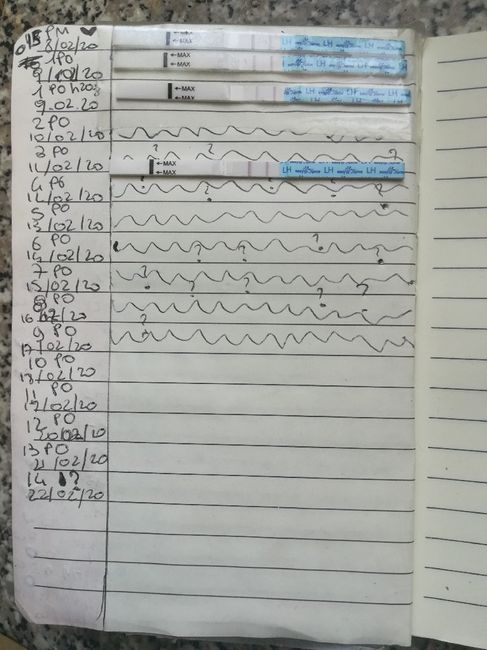 PM
8/02/20
← MAX
LH LH LH
1PO
9/02/20
← MAX
LH LH LH
1 PO
9.02.20
← MAX
← MAX
LH LH LH
2 PO
10/02/20
3 PO
? ? ?
11/02/20
← MAX
← MAX
LH LH LH
4 PO
12/02/20
5 PO
13/02/20
6 PO
? ? ? ?
14/02/20
7 PO
?
15/02/20
? ? ? ?
8 PO
16/02/20
?
9 PO
17/02/20
10 PO
18/02/20
11 PO
19/02/20
12 PO
20/02/20
13 PO
21/02/20
14 ?
22/02/20